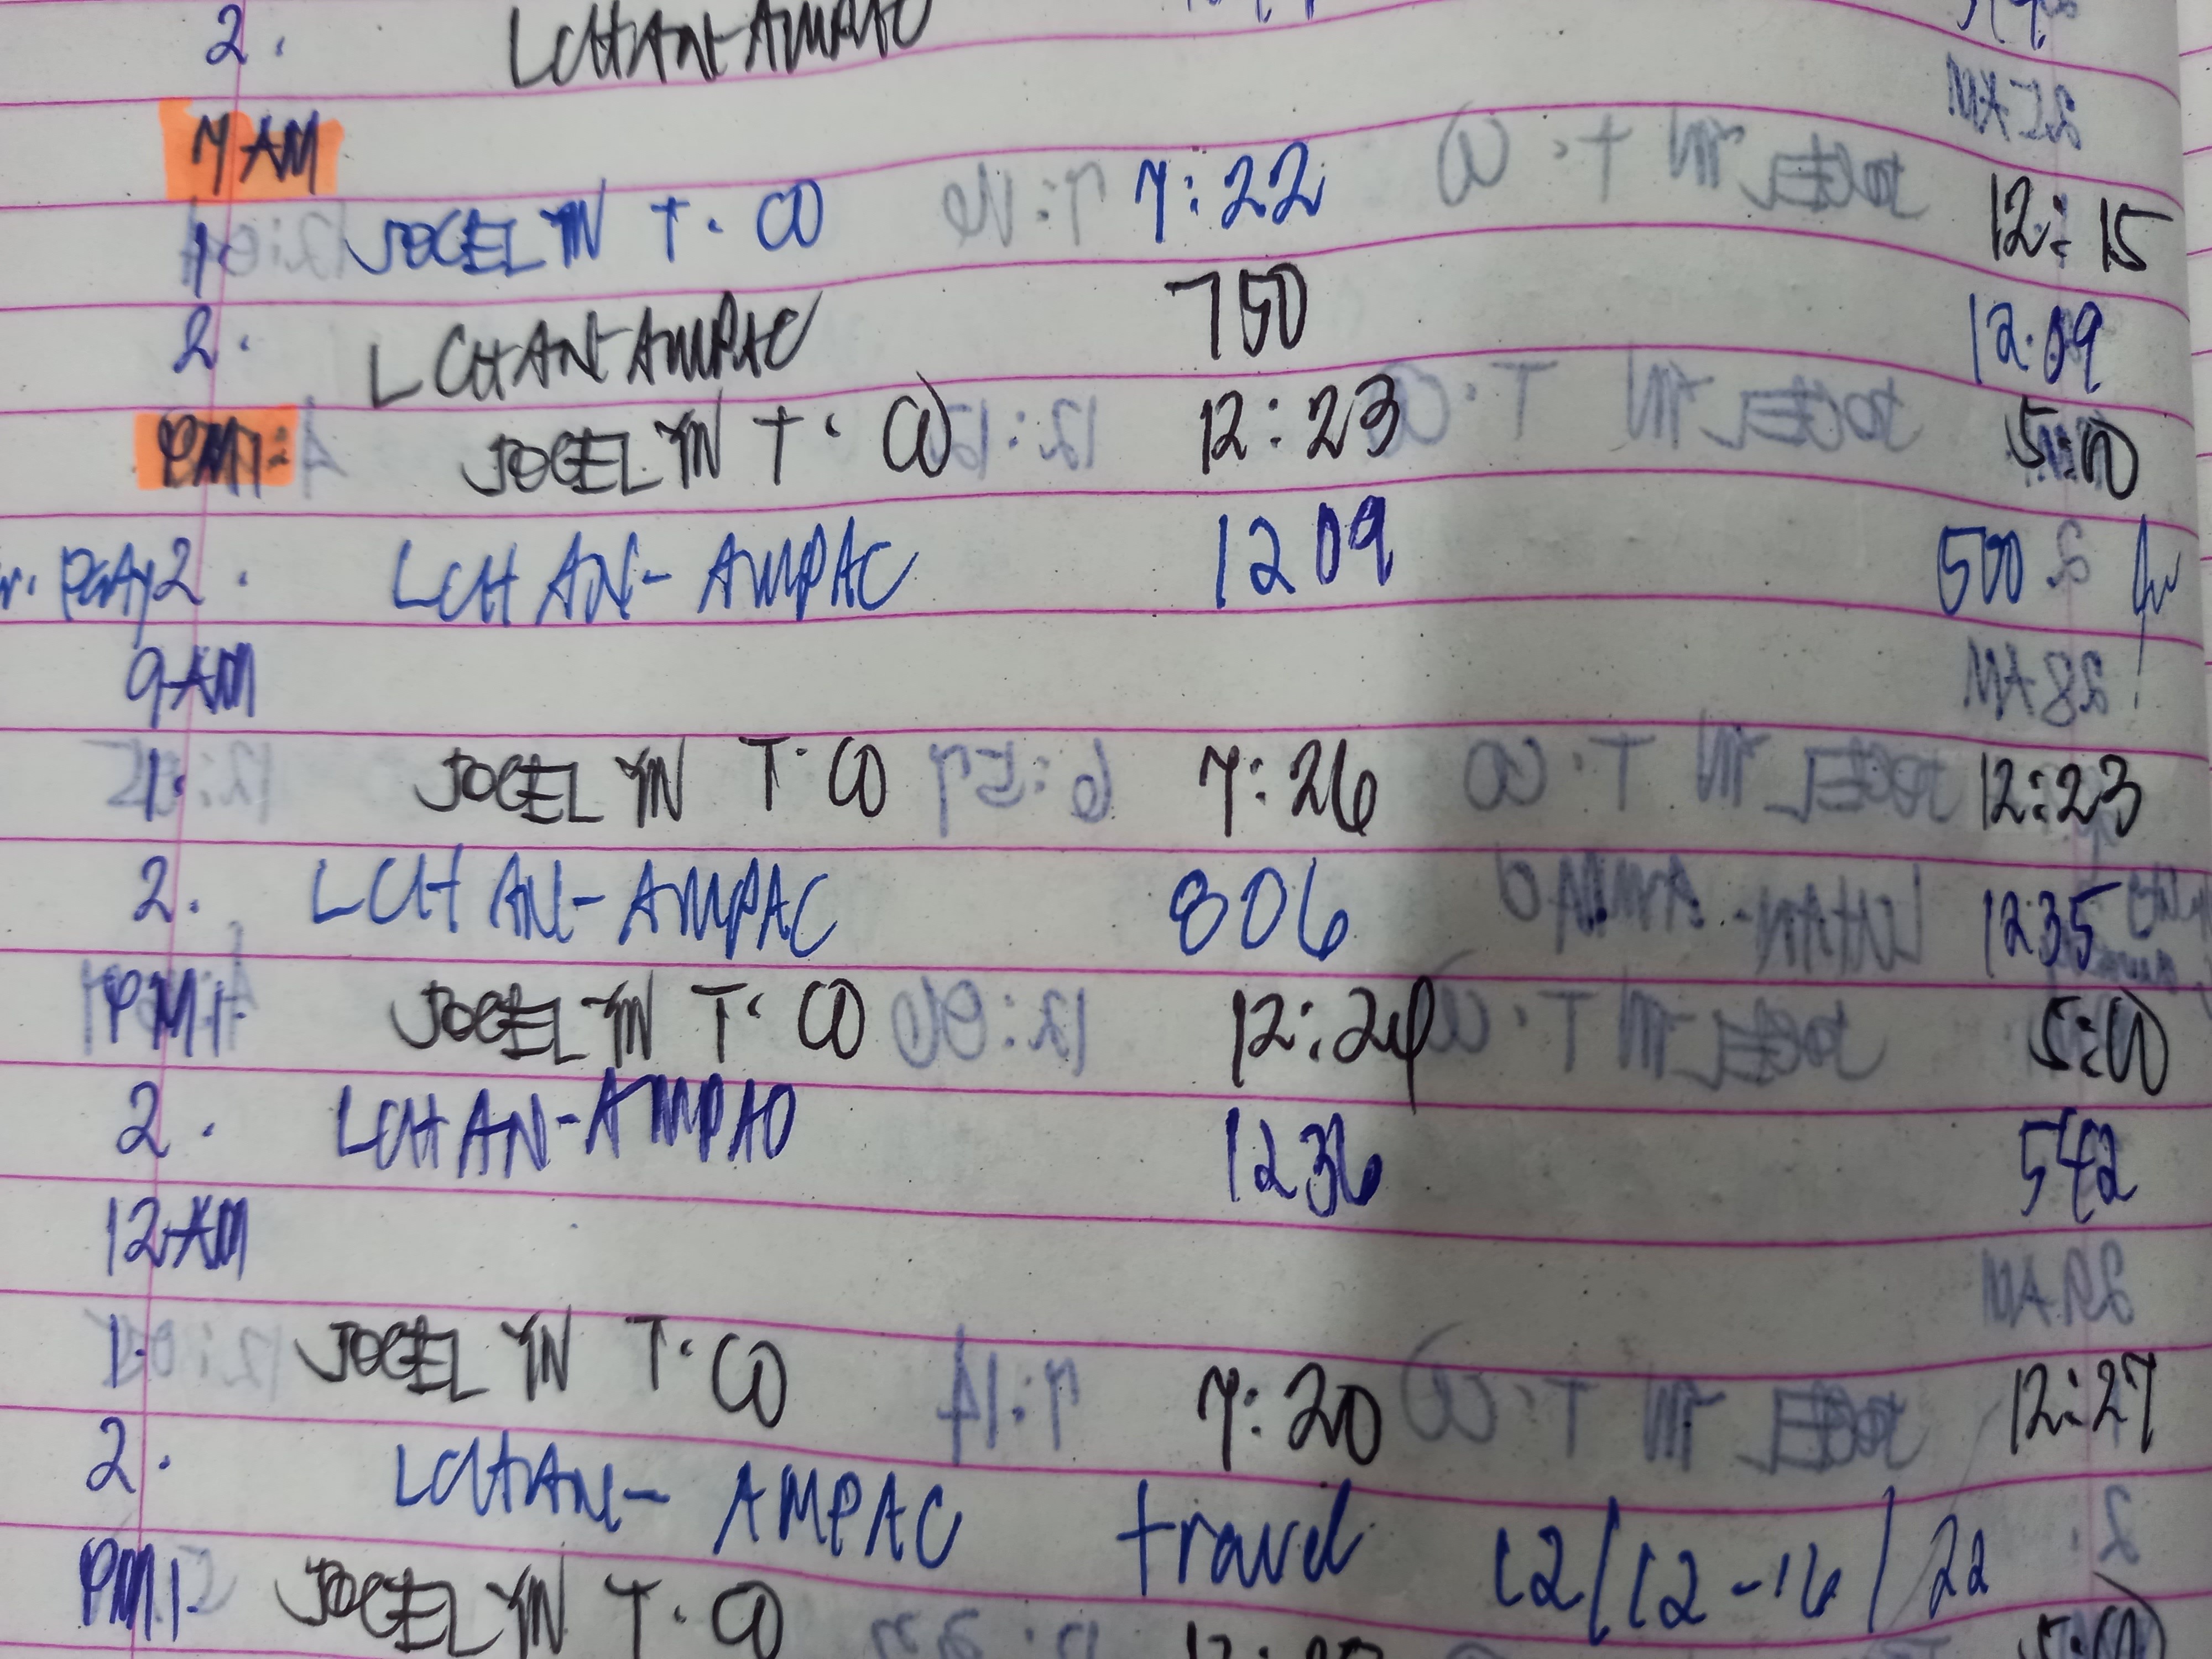 2. LCHAN-AMPAC
7 AM
1. JOCELYN T. CO 7:22 12:15
2. LCHAN-AMPAC 750 12:09
PM 1. JOCELYN T. CO 12:23 5:00
2. LCHAN-AMPAC 1209 500
9 AM
1. JOCELYN T. CO 7:26 12:23
2. LCHAN-AMPAC 806 1235
PM 1. JOCELYN T. CO 12:24 5:00
2. LCHAN-AMPAC 1236 542
12 AM
1. JOCELYN T. CO 7:20 12:27
2. LCHAN-AMPAC travel 12/12-16/22
PM 1. JOCELYN T. CO 5:00